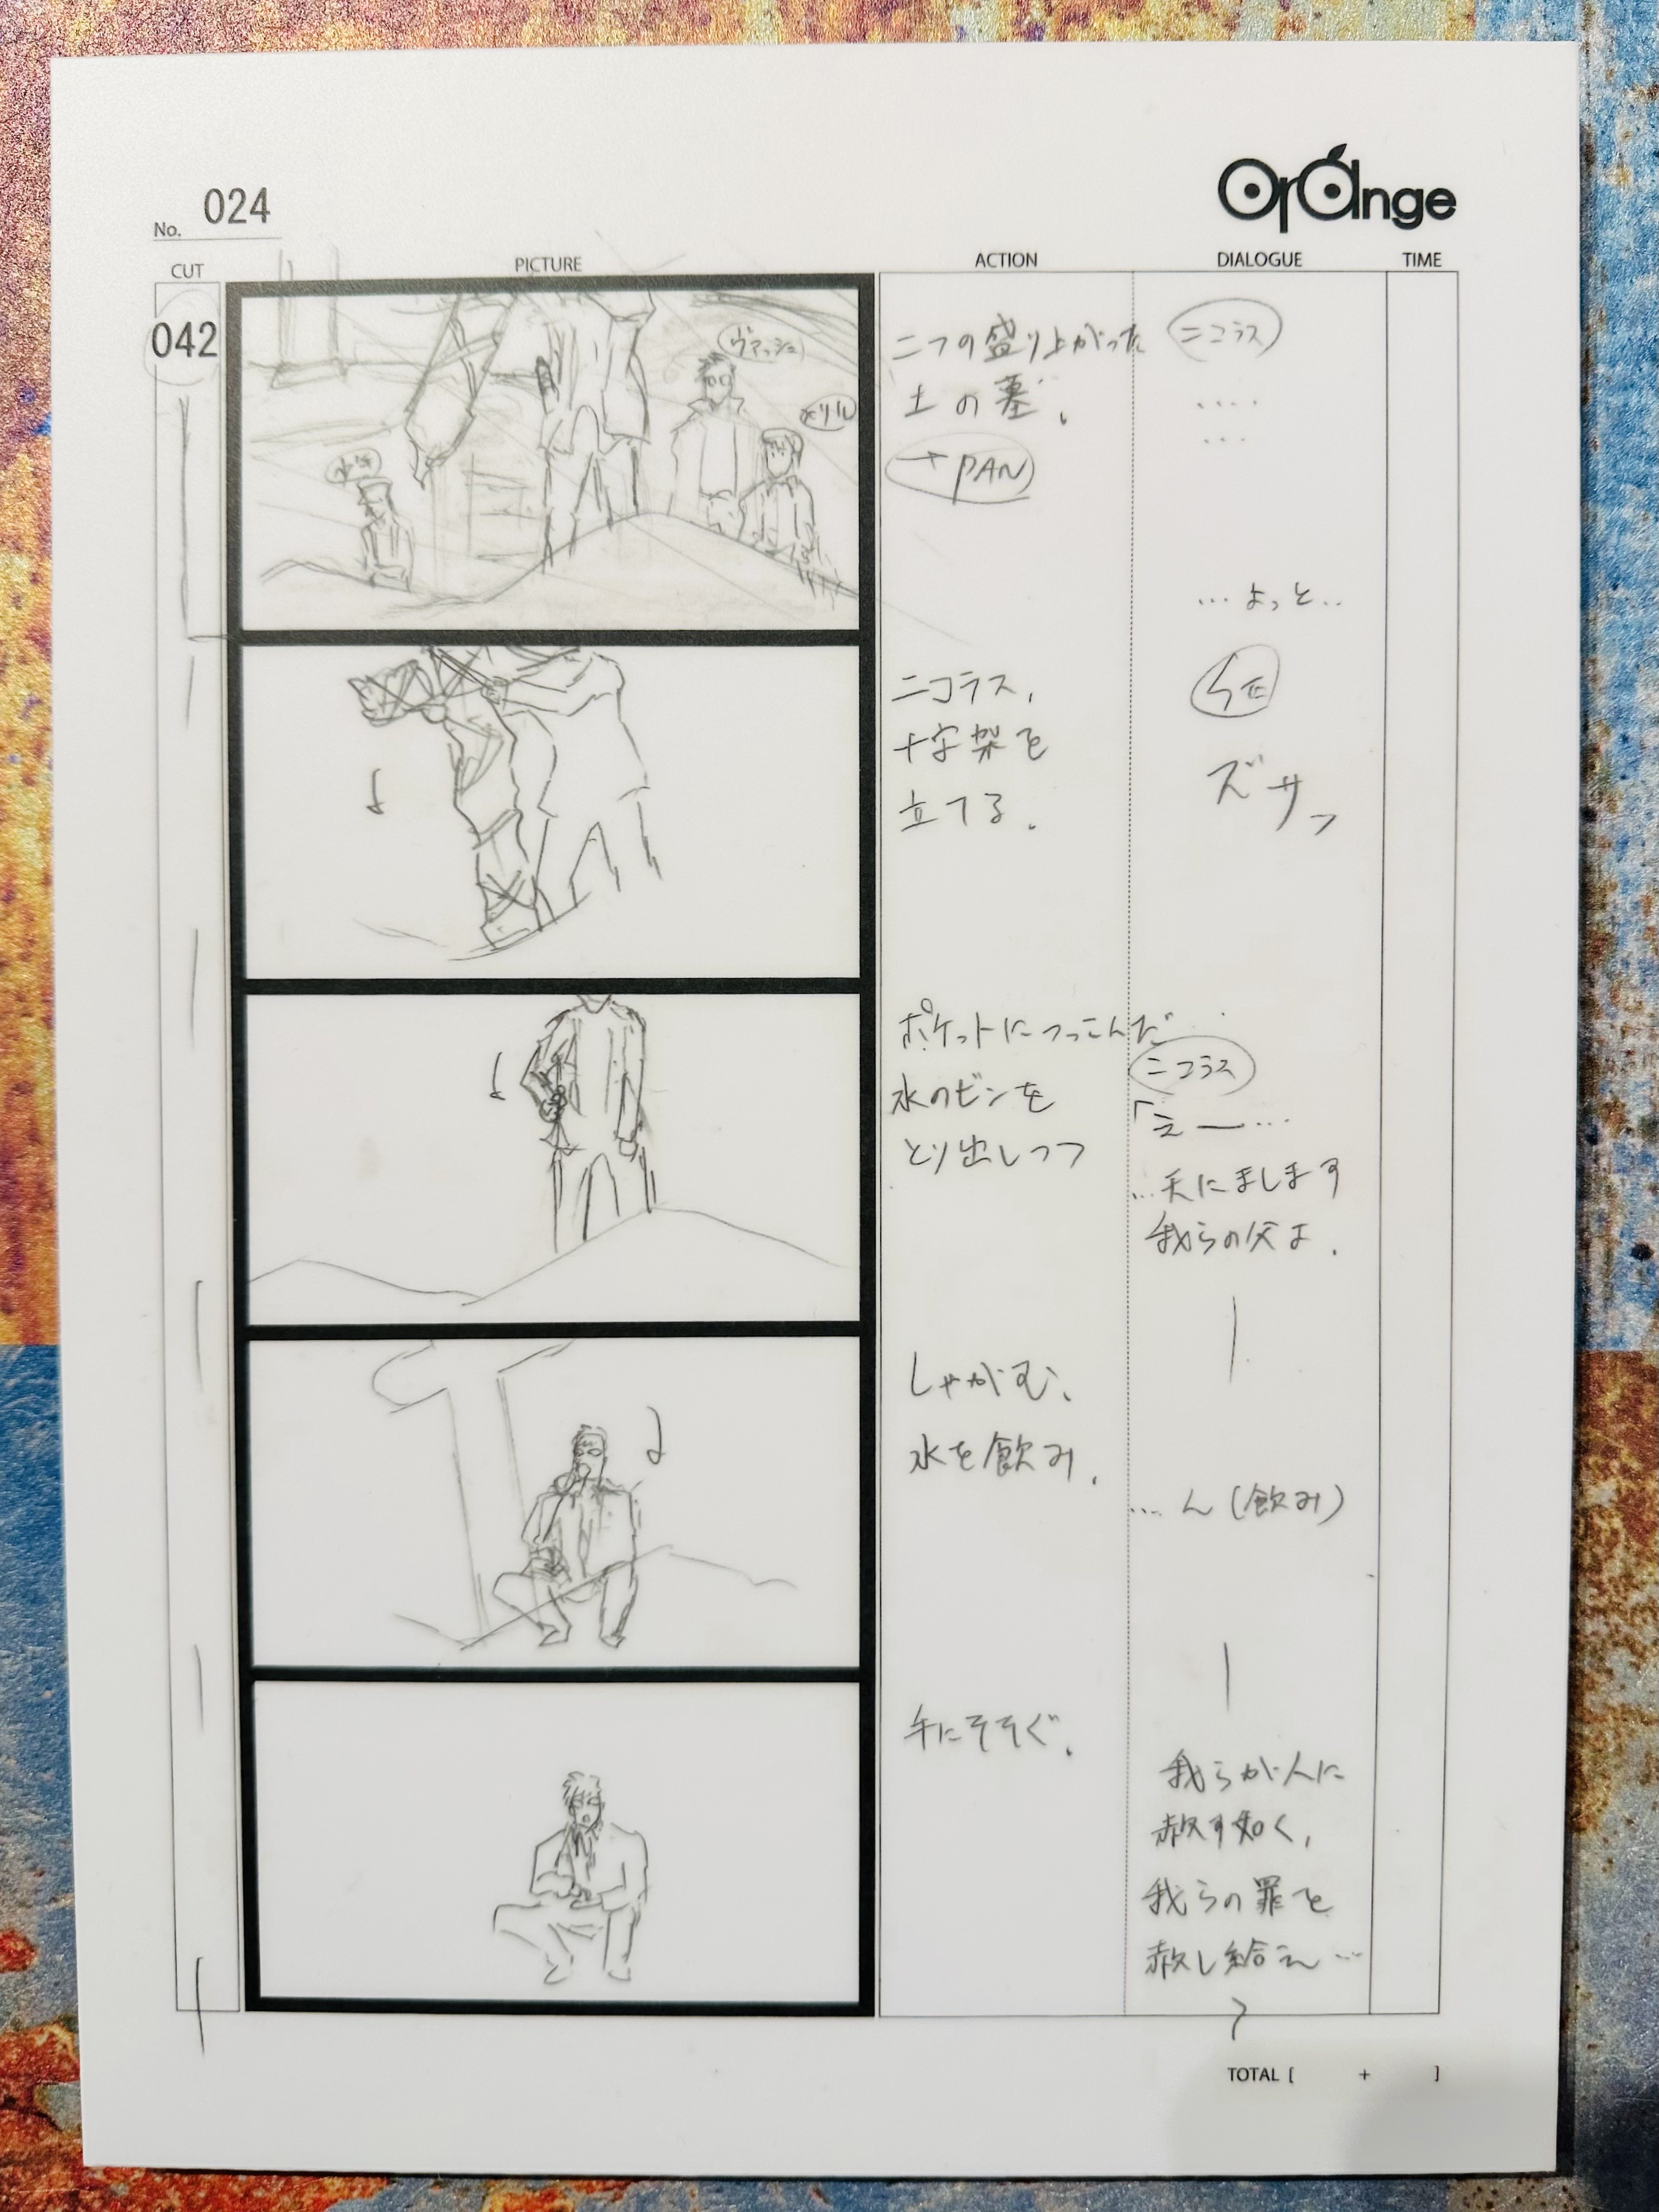 No. 024
Orange
CUT
PICTURE
ACTION
DIALOGUE
TIME
042
ヴァッシュ
メリル
二つの盛り上がった
土の墓、
→PAN
ニコラス
‥‥
…
…よっと‥
ニコラス、
十字架を
立てる.
SE
ズサッ
ポケットにつっこんだ
水のビンを
とり出しつつ
ニコラス
「えー…
…天にまします
我らの父よ.
しゃがむ、
水を飲み.
…ん(飲み)
手にそそぐ.
我らが人に
赦す如く,
我らの罪を
赦し給え…
TOTAL [ + ]